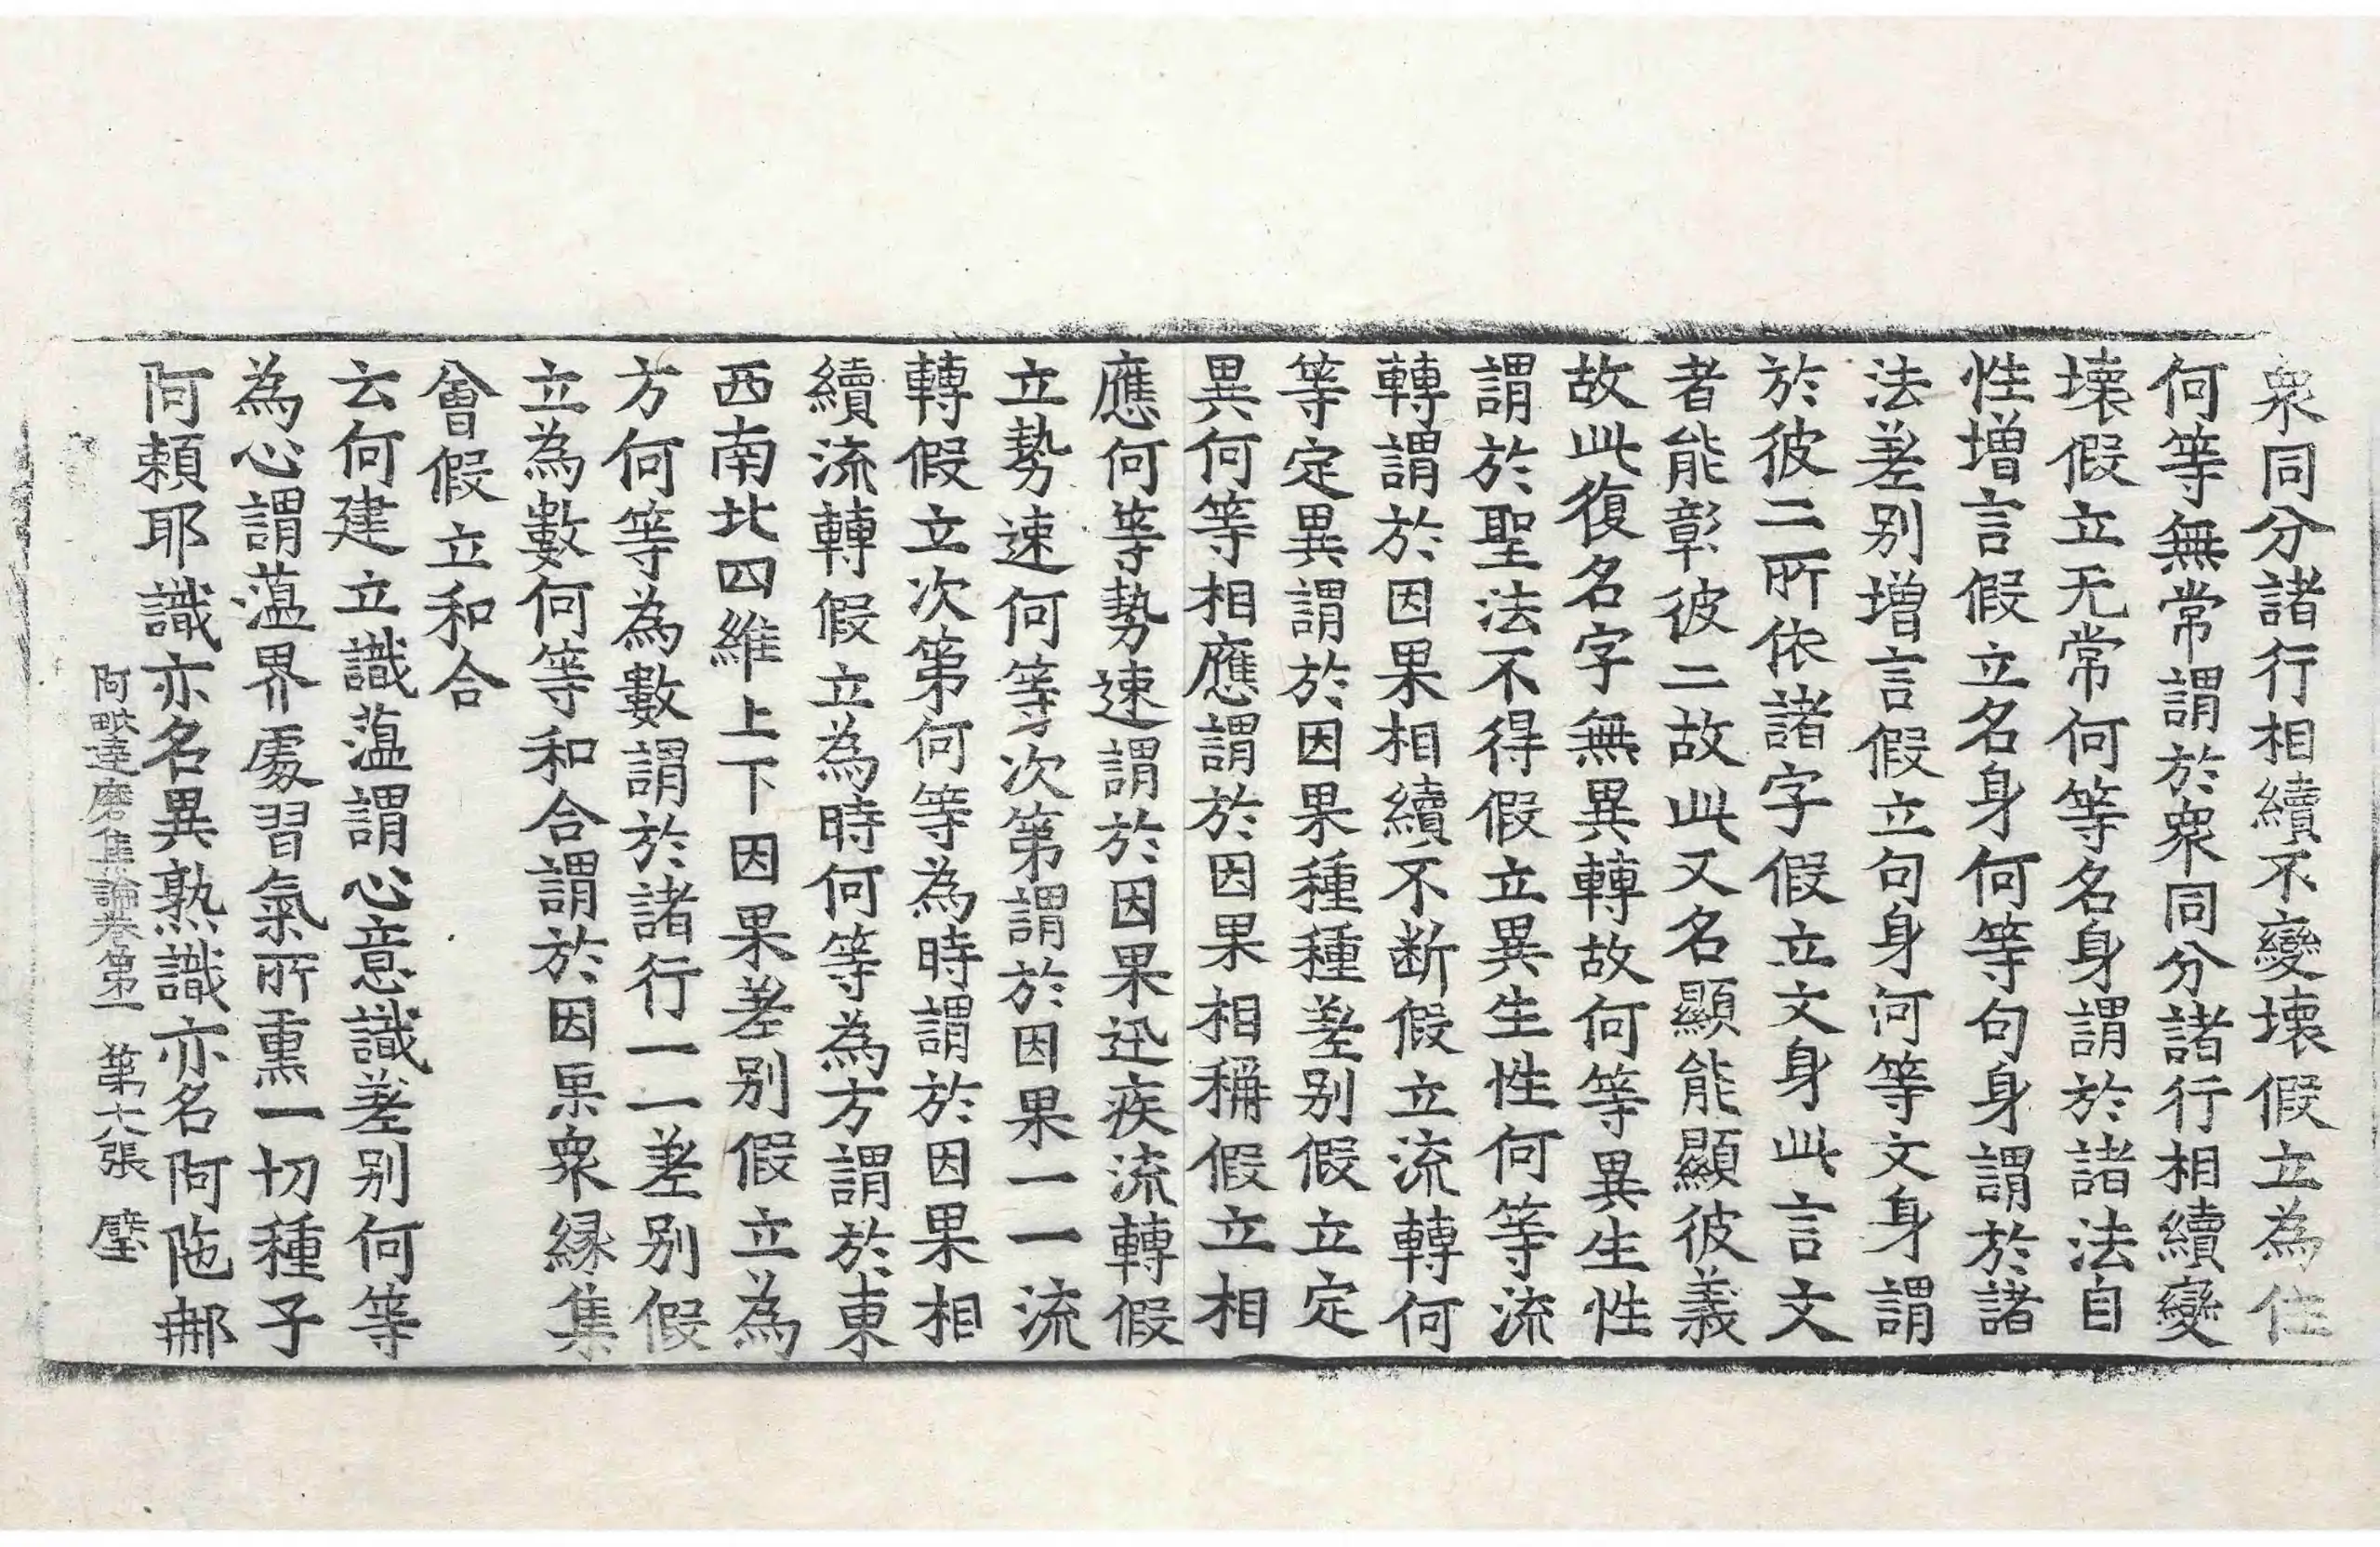 衆同分諸行相續不變壞假立為住
何等無常謂於衆同分諸行相續變
壞假立无常何等名身謂於諸法自
性增言假立名身何等句身謂於諸
法差别增言假立句身何等文身謂
於彼二所依諸字假立文身此言文
者能彰彼二故此又名顯能顯彼義
故此復名字無異轉故何等異生性
謂於聖法不得假立異生性何等流
轉謂於因果相續不断假立流轉何
等定異謂於因果種種差别假立定
異何等相應謂於因果相稱假立相
應何等勢速謂於因果迅疾流轉假
立勢速何等次第謂於因果一一流
轉假立次第何等為時謂於因果相
續流轉假立為時何等為方謂於東
西南北四維上下因果差别假立為
方何等為數謂於諸行一一差别假
立為數何等和合謂於因果衆緣集
會假立和合
云何建立識薀謂心意識差别何等
為心謂薀界處習氣所熏一切種子
阿賴耶識亦名異熟識亦名阿陁那
阿毗達磨集論卷第一 第六張 璧